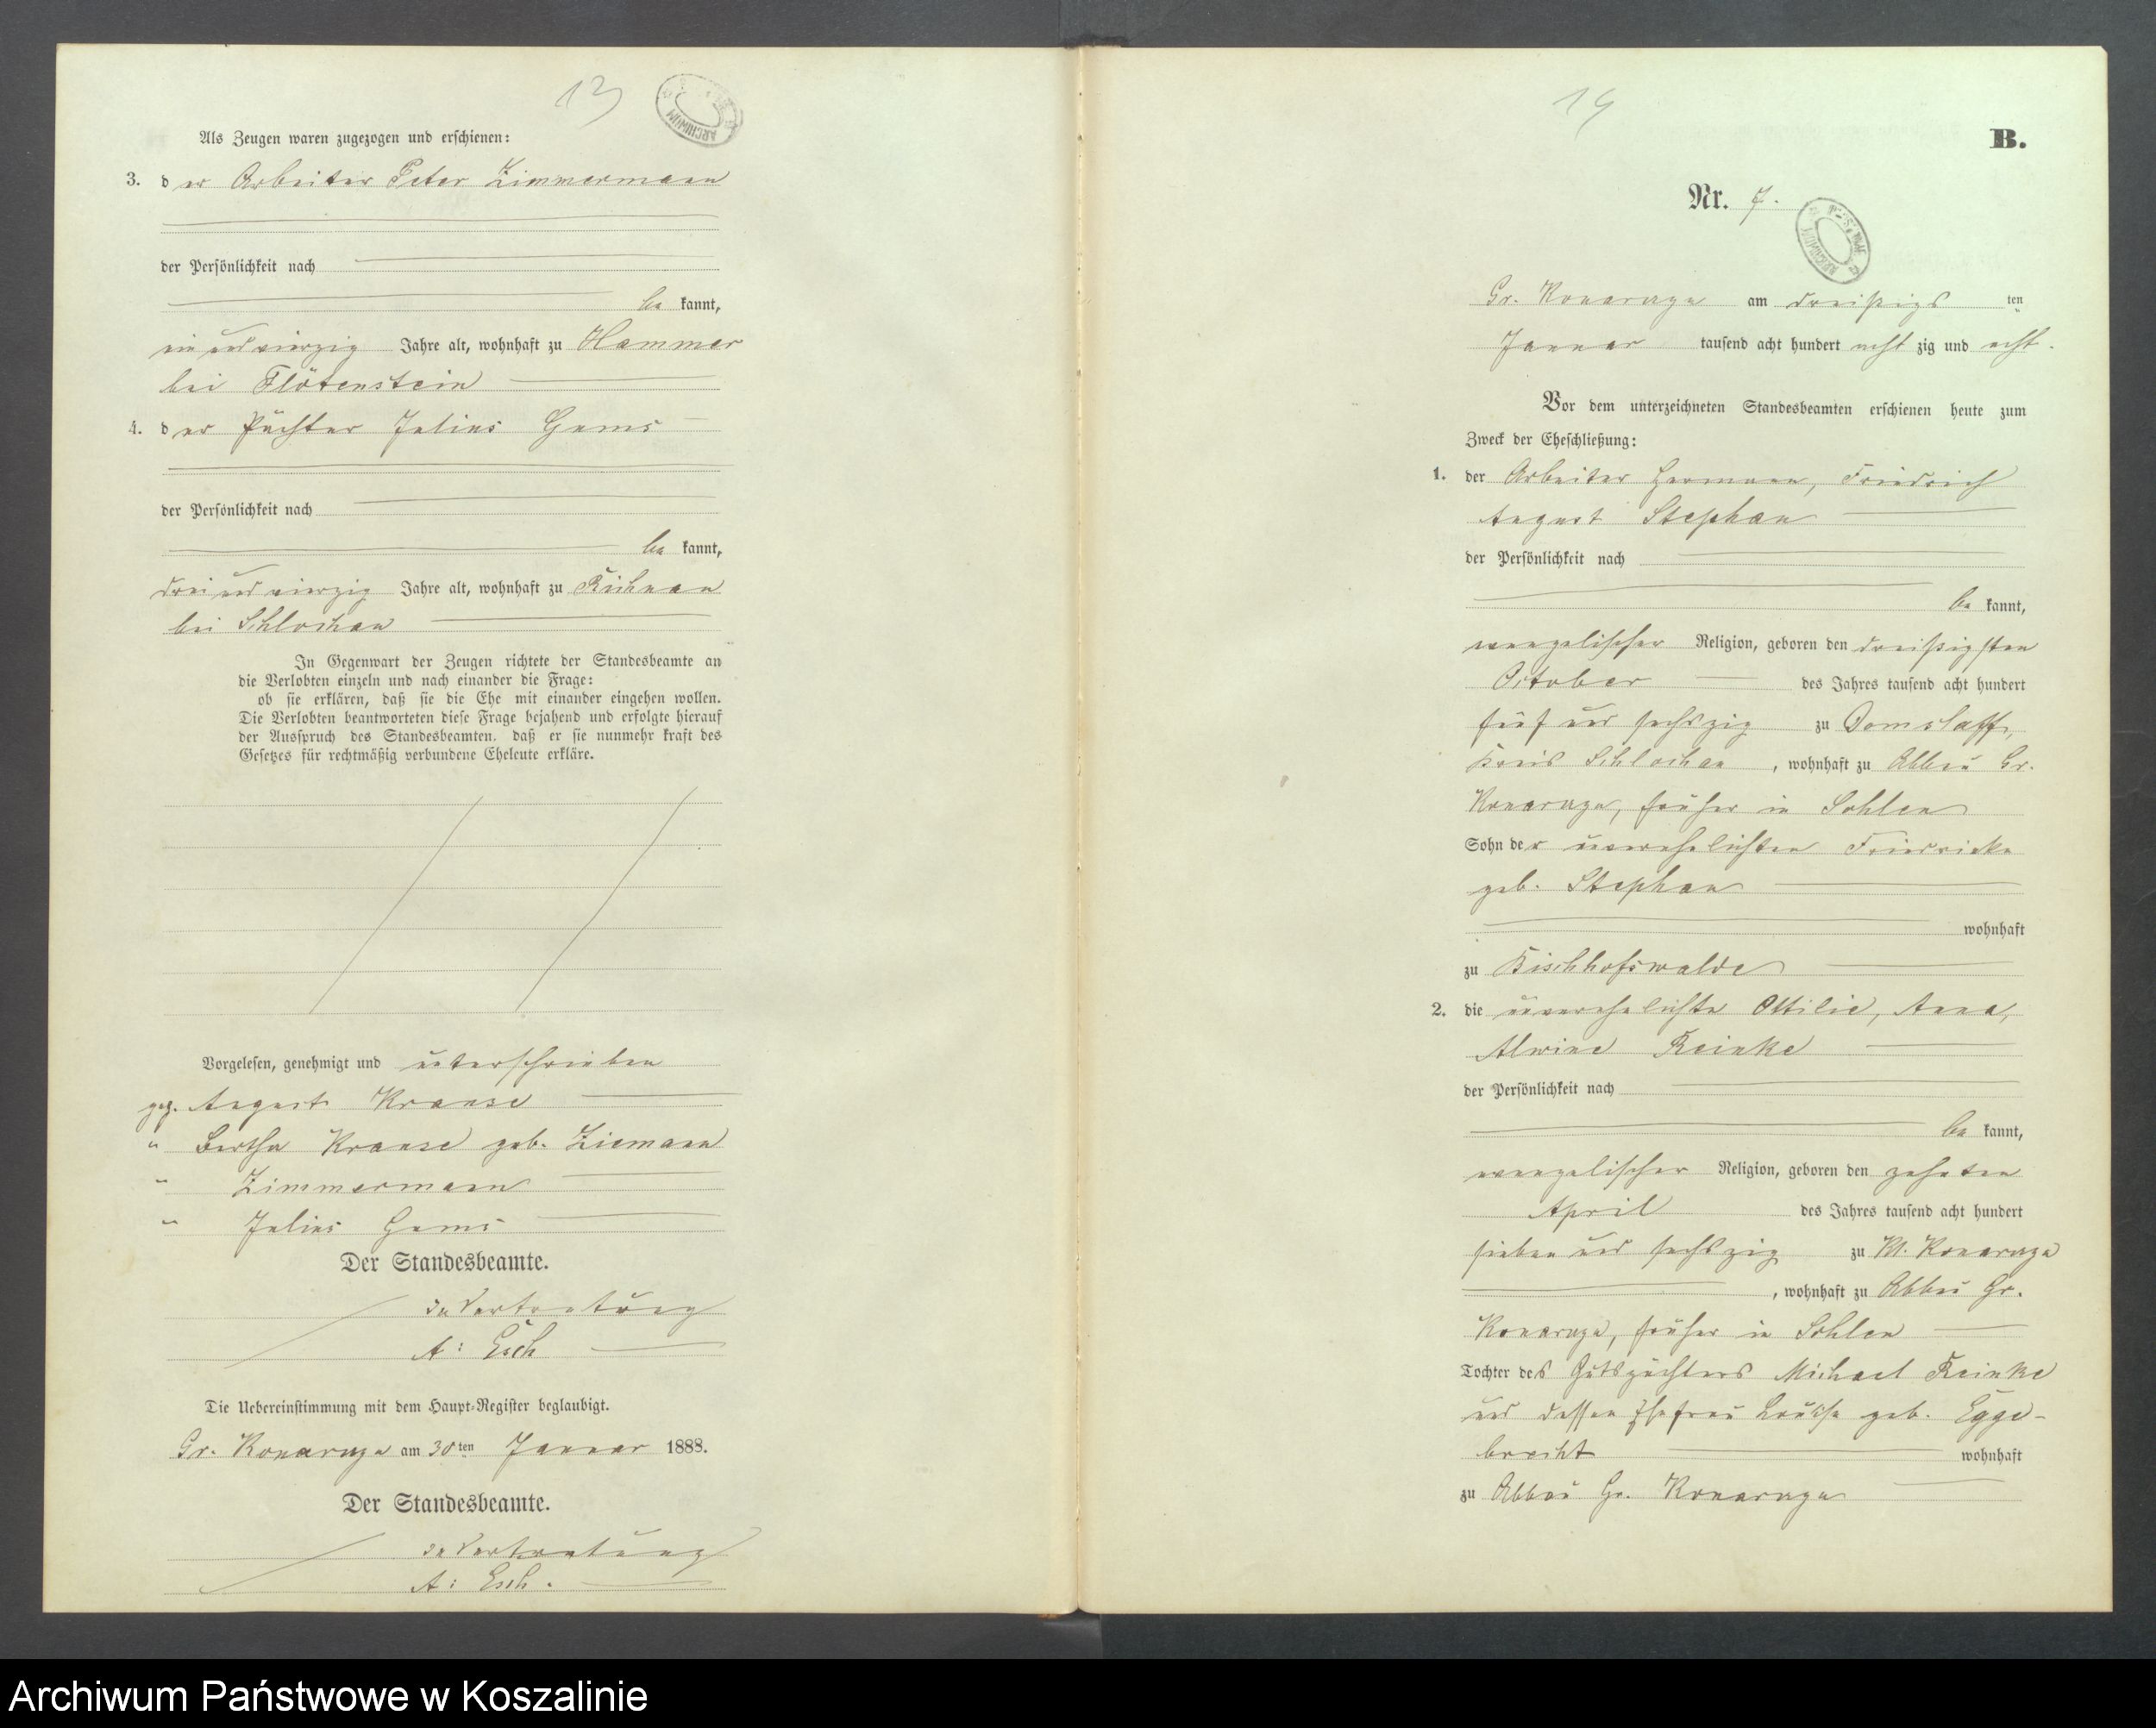 13
Als Zeugen waren zugezogen und erschienen:
3. der Arbeiter Peter Zimmermann
der Persönlichkeit nach
be kannt,
ein und vierzig Jahre alt, wohnhaft zu Hammer
bei Flötenstein
4. der Pächter Julius Gems
der Persönlichkeit nach
be kannt,
drei und vierzig Jahre alt, wohnhaft zu Richnau
bei Schlochau
In Gegenwart der Zeugen richtete der Standesbeamte an
die Verlobten einzeln und nach einander die Frage:
ob sie erklären, daß sie die Ehe mit einander eingehen wollen.
Die Verlobten beantworteten diese Frage bejahend und erfolgte hierauf
der Ausspruch des Standesbeamten, daß er sie nunmehr kraft des
Gesetzes für rechtmäßig verbundene Eheleute erkläre.
Vorgelesen, genehmigt und unterschrieben
gez. August Krause
" Bertha Krause geb. Ziemann
" Zimmermann
" Julius Gems
Der Standesbeamte.
In Vertretung
A: Esch
Die Uebereinstimmung mit dem Haupt-Register beglaubigt.
Gr. Konarzyn am 30ten Januar 1888.
Der Standesbeamte.
In Vertretung
A: Esch.
14
B.
Nr. 7.
Gr. Konarzyn am dreißigs ten
Januar tausend acht hundert acht zig und acht.
Vor dem unterzeichneten Standesbeamten erschienen heute zum
Zweck der Eheschließung:
1. der Arbeiter Hermann, Friedrich
August Stephan
der Persönlichkeit nach
be kannt,
evangelischer Religion, geboren den dreißigsten
October des Jahres tausend acht hundert
fünf und sechszig zu Domslaff,
Kreis Schlochau, wohnhaft zu Abbau Gr.
Konarzyn, früher in Sohlen
Sohn der unverehelichten Friedricke
geb. Stephan
wohnhaft
zu Bischhofswalde
2. die unverehelichte Ottilie, Anna,
Alwine Reinke
der Persönlichkeit nach
be kannt,
evangelischer Religion, geboren den zehnten
April des Jahres tausend acht hundert
sieben und sechszig zu Kl. Konarzyn
, wohnhaft zu Abbau Gr.
Konarzyn, früher in Sohlen
Tochter des Gutspächters Michael Reinke
und dessen Ehefrau Louise geb. Egge-
brecht wohnhaft
zu Abbau Gr. Konarzyn
Archiwum Państwowe w Koszalinie